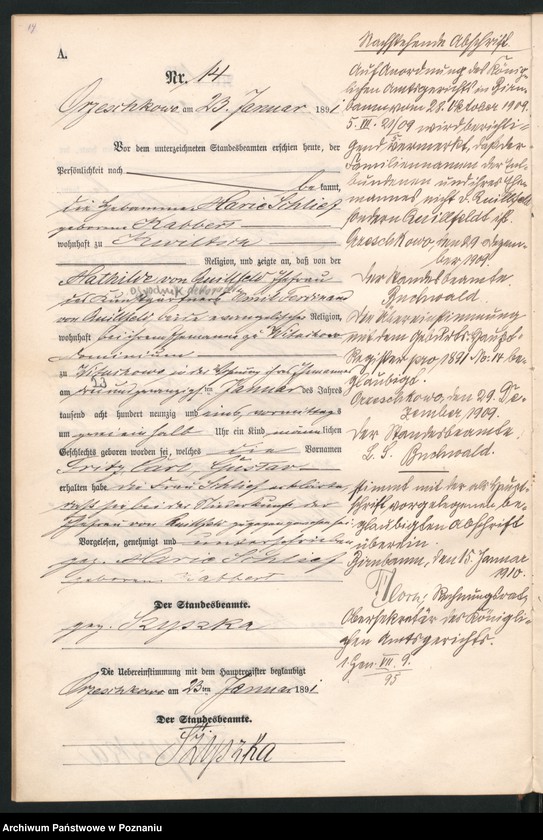 14
A.
Nr. 14
Orzeschkowo am 23. Januar 1891
Vor dem unterzeichneten Standesbeamten erschien heute, der
Persönlichkeit nach
bekannt,
die Hebamme Marie Schlief
geborene Rabbert
wohnhaft zu Kwiltsch
Religion, und zeigte an, daß von der
Mathilde von Quillfeld Ehefrau
ogrodnik dekoracji
des Kunstgärtners Emil Ferdinand
von Quillfeld beide evangelische Religion,
wohnhaft bei ihrem Ehemanne zu Witutkowo
Dominium
zu Witutkowo in der Wohnung ihres Ehemannes
23
am dreiundzwanzigsten Januar des Jahres
tausend acht hundert neunzig und eins, vormittags
um zwei einhalb Uhr ein Kind männlichen
Geschlechts geboren worden sei, welches die Vornamen
Fritz, Carl, Gustav
erhalten habe. die Frau Schlief erklärte,
daß sie bei der Niederkunft der
Ehefrau von Quillfeld zugegen gewesen sei
Vorgelesen, genehmigt und unterschrieben
gez. Marie Schlief
geborene Rabbert
Der Standesbeamte.
gez. Szyszka
Die Uebereinstimmung mit dem Hauptregister beglaubigt
Orzeschkowo am 23ten Januar 1891
Der Standesbeamte.
Szyszka
Nachstehende Abschrift
Auf Anordnung des König-
lichen Amtsgerichts in Birn-
baum vom 28. Oktober 1909.
5. III. 21/09 wird berichti-
gend vermerkt, daß der
Familienname der Ent-
bundenen und ihres Ehe-
mannes nicht v. Quillfeld
sondern Quillfeldt ist.
Orzeschkowo, den 29. Dezem-
ber 1909.
Der Standesbeamte.
Buchwald.
Die Übereinstimmung
mit dem Geburts-Haupt-
Register pro 1891 No: 14 be-
glaubigt.
Orzeschkowo, den 29. De-
zember 1909.
Der Standesbeamte.
L. S. Buchwald.
stimmt mit der als Haupt-
schrift vorgelegenen be-
glaubigten Abschrift
überein.
Birnbaum, den 15. Januar
1910.
Rechnungsrat,
Obersekretär des Königli-
chen Amtsgerichts.
VII. 9.
95
Archiwum Państwowe w Poznaniu